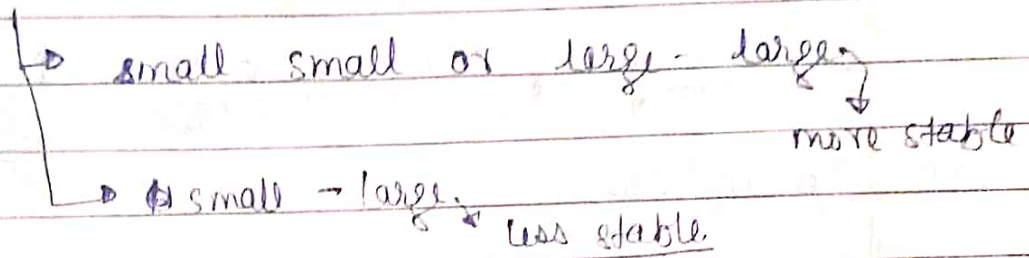 small small or large - large.
more stable
small - large.
less stable.